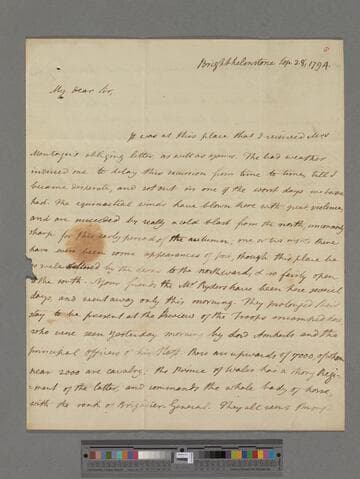 Brighthelmstone Sep. 28, 1794.
My dear Sir,
It was at this place that I received Mrs
Montagu's obliging letter as well as yours. The bad weather
induced me to delay this excursion from time to time, till I
became desperate, and set out in one of the worst days we have
had. The equinoctial winds have blown here with great violence,
and are succeeded by really a cold blast from the north, uncommonly
sharp for this early period of the autumn, one or two nights there
have even been some appearances of frost, though this place be
so well by the downs to the northward, & so fairly open
to the south. Your friends the Mr. Ryders have been here several
days, and went away only this morning. They prolonged their
stay to be present at the Review of the Troops encamped here,
who were seen yesterday morning by Lord Amherst and the
principal officers of his staff. There are upwards of 7000 of them
near 2000 are cavalry. The Prince of Wales has a strong Regi-
ment of the latter, and commands the whole body of horse,
with the rank of Brigadier General. They all seem strong